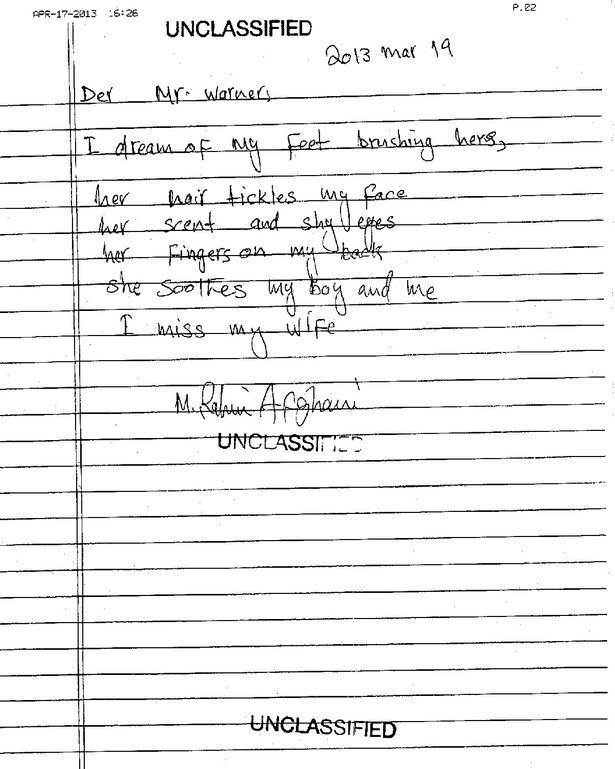 APR-17-2013 16:26 P.02
UNCLASSIFIED
2013 mar 19
Der Mr. Warner,
I dream of my feet brushing hers,
her hair tickles my face
her scent and shy eyes
her fingers on my back
she soothes my boy and me
I miss my wife
M. Rahim Afghani
UNCLASSIFIED
UNCLASSIFIED